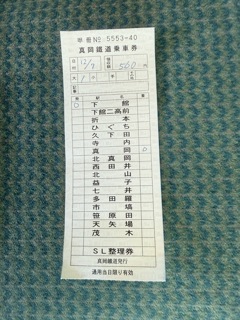 甲 冊 No 5553-40
真岡鐵道乗車券
12/7
560円
大 1
下館
下館二高前
折本
ひぐち
久下田
寺内
真岡
北真岡
西田井
北山
益子
七井
多田羅
市塙
笹原田
天矢場
茂木
SL整理券
真岡鐵道発行
通用当日限り有効